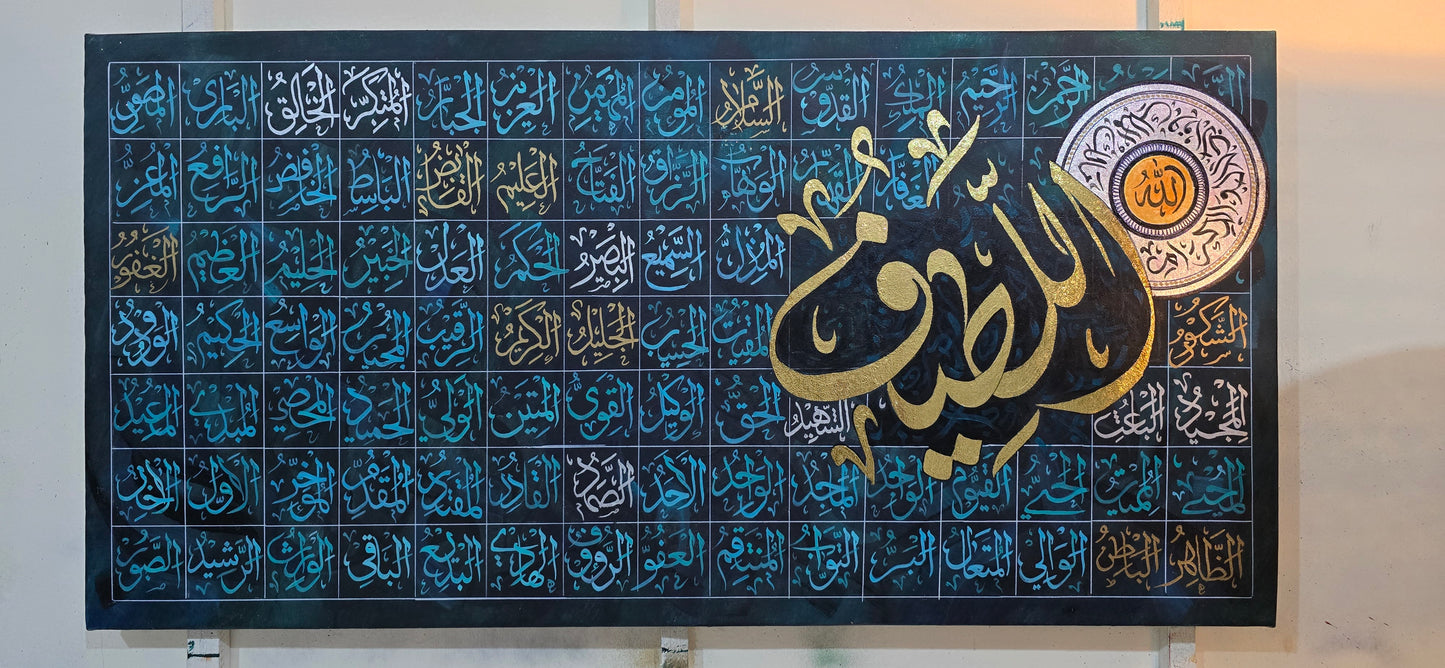 الرَّحْمٰنُ الرَّحِيْمُ المَلِكُ القُدُّوسُ السَّلَامُ المُؤْمِنُ المُهَيْمِنُ العَزِيْزُ الجَبَّارُ المُتَكَبِّرُ الخَالِقُ البَارِئُ المُصَوِّرُ
الغَفَّارُ القَهَّارُ الوَهَّابُ الرَّزَّاقُ الفَتَّاحُ العَلِيْمُ القَابِضُ البَاسِطُ الخَافِضُ الرَّافِعُ المُعِزُّ
المُذِلُّ السَّمِيْعُ البَصِيْرُ الحَكَمُ العَدْلُ الخَبِيْرُ الحَلِيْمُ العَظِيْمُ الغَفُوْرُ
اللَّطِيْفُ
الله
الشَّكُوْرُ المُقِيْتُ الحَسِيْبُ الجَلِيْلُ الكَرِيْمُ الرَّقِيْبُ المُجِيْبُ الوَاسِعُ الحَكِيْمُ الوَدُوْدُ
المَجِيْدُ البَاعِثُ الشَّهِيْدُ الحَقُّ الوَكِيْلُ القَوِيُّ المَتِيْنُ الوَلِيُّ الحَمِيْدُ المُحْصِي المُبْدِئُ المُعِيْدُ
المُحْيِي المُمِيْتُ الحَيُّ القَيُّوْمُ الوَاجِدُ المَاجِدُ الوَاحِدُ الاَحَدُ الصَّمَدُ القَادِرُ المُقْتَدِرُ المُقَدِّمُ المُؤَخِّرُ الاَوَّلُ الاٰخِرُ
الظَّاهِرُ البَاطِنُ الوَالِي المُتَعَالِ البَرُّ التَّوَّابُ المُنْتَقِمُ العَفُوُّ الرَّءُوْفُ الهَادِي البَدِيْعُ البَاقِي الوَارِثُ الرَّشِيْدُ الصَّبُوْرُ